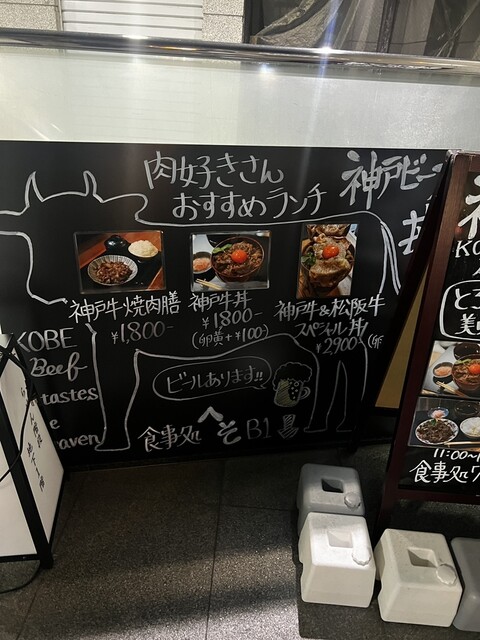 肉好きさん
おすすめランチ
神戸ビー
神戸牛焼肉膳
¥1,800-
神戸牛丼
¥1800-
(卵黄+¥100-)
神戸牛&松阪牛
スペシャル丼
¥2,900-
KOBE
Beef
tastes
e
aven
ビールあります!!
食事処 へそ B1
KO
11:00~
食事処